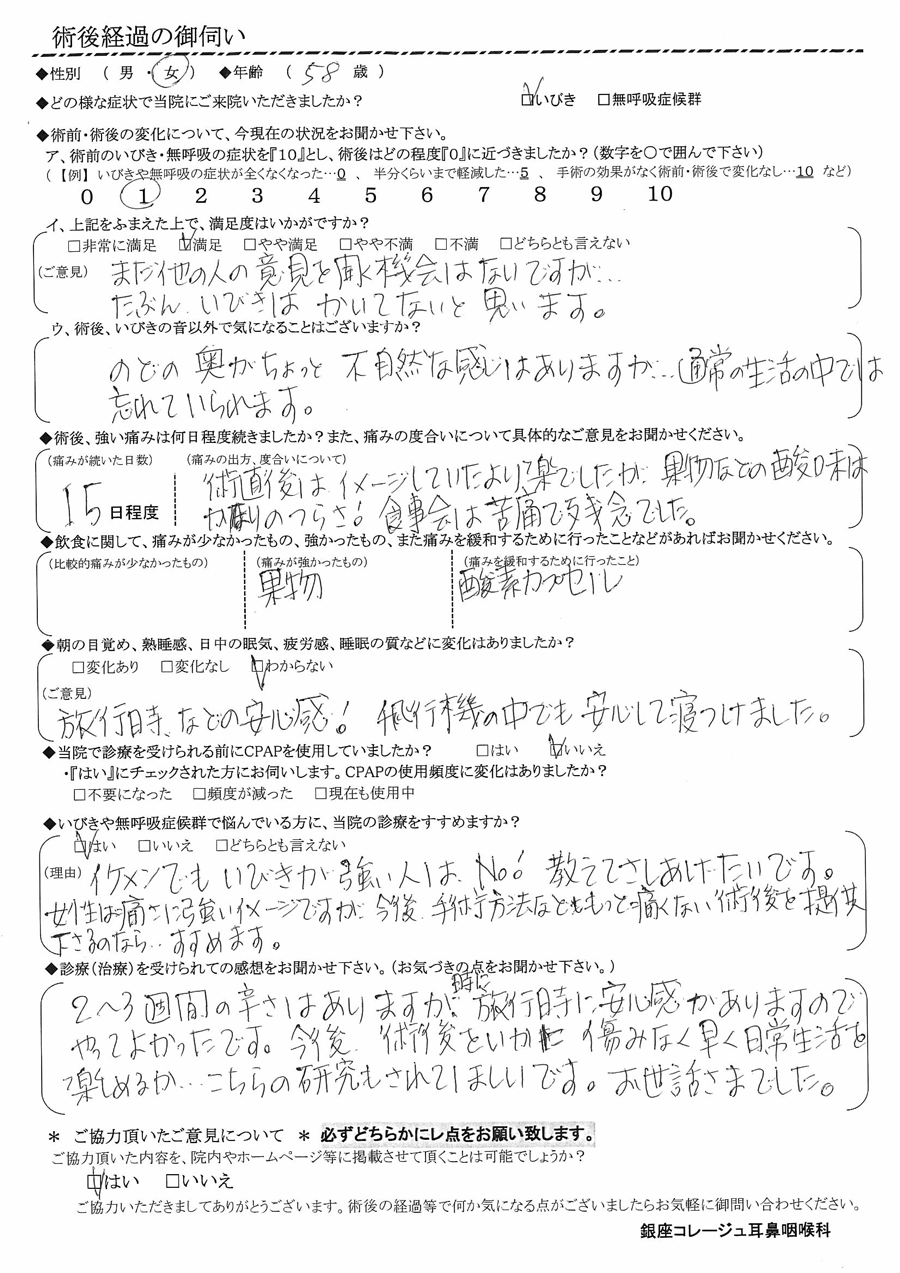 術後経過の御伺い
◆性別 （ 男 ・ 女 ） ◆年齢 （ 58 歳 ）
◆どの様な症状で当院にご来院いただきましたか？ ☑いびき □無呼吸症候群
◆術前・術後の変化について、今現在の状況をお聞かせ下さい。
ア、術前のいびき・無呼吸の症状を『10』とし、術後はどの程度『0』に近づきましたか？（数字を○で囲んで下さい）
（【例】いびきや無呼吸の症状が全くなくなった…0 、 半分くらいまで軽減した…5 、 手術の効果がなく術前・術後で変化なし…10 など）
0 1 2 3 4 5 6 7 8 9 10
イ、上記をふまえた上で、満足度はいかがですか？
□非常に満足 ☑満足 □やや満足 □やや不満 □不満 □どちらとも言えない
（ご意見） まだ他の人の意見を聞く機会はないですが…
たぶん いびきは かいてないと 思います。
ウ、術後、いびきの音以外で気になることはございますか？
のどの奥がちょっと 不自然な感じはありますが…通常の生活の中では
忘れていられます。
◆術後、強い痛みは何日程度続きましたか？また、痛みの度合いについて具体的なご意見をお聞かせください。
（痛みが続いた日数） （痛みの出方、度合いについて）
術直後は イメージしていたより楽でしたが 果物などの酸味は
15 日程度 かなりのつらさ！ 食事会は苦痛で残念でした。
◆飲食に関して、痛みが少なかったもの、強かったもの、また痛みを緩和するために行ったことなどがあればお聞かせください。
（比較的痛みが少なかったもの） （痛みが強かったもの） （痛みを緩和するために行ったこと）
果物 酸素カプセル
◆朝の目覚め、熟睡感、日中の眠気、疲労感、睡眠の質などに変化はありましたか？
□変化あり □変化なし ☑わからない
（ご意見）
旅行時、などの安心感！ 飛行機の中でも 安心して寝つけました。
◆当院で診療を受けられる前にCPAPを使用していましたか？ □はい ☑いいえ
・『はい』にチェックされた方にお伺いします。CPAPの使用頻度に変化はありましたか？
□不要になった □頻度が減った □現在も使用中
◆いびきや無呼吸症候群で悩んでいる方に、当院の診療をすすめますか？
☑はい □いいえ □どちらとも言えない
（理由） イケメンでも いびきが 強い人は、No！ 教えてさしあげたいです。
女性は痛さに強いイメージですが 今後 手術方法などももっと痛くない 術後を提供
下さるのなら… すすめます。
◆診療（治療）を受けられての感想をお聞かせ下さい。（お気づきの点をお聞かせ下さい。）
2〜3週間の辛さはありますが、特に 旅行時に安心感がありますので
やってよかったです。今後、術後といかに 傷みなく早く日常生活を
楽しめるか… こちらの研究もされてほしいです。お世話さまでした。
＊ ご協力頂いたご意見について ＊ 必ずどちらかにレ点をお願い致します。
ご協力頂いた内容を、院内やホームページ等に掲載させて頂くことは可能でしょうか？
☑はい □いいえ
ご協力いただきましてありがとうございます。術後の経過等で何か気になる点がございましたらお気軽に御問い合わせください。
銀座コレージュ耳鼻咽喉科